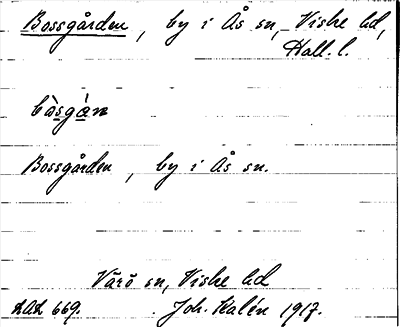 Bossgården, by i Ås sn, Viske hd,
Hall. l.
bòsgàn
Bossgården, by i Ås sn.
Värö sn, Viske hd
LAL 669. Joh. Kalén 1917.